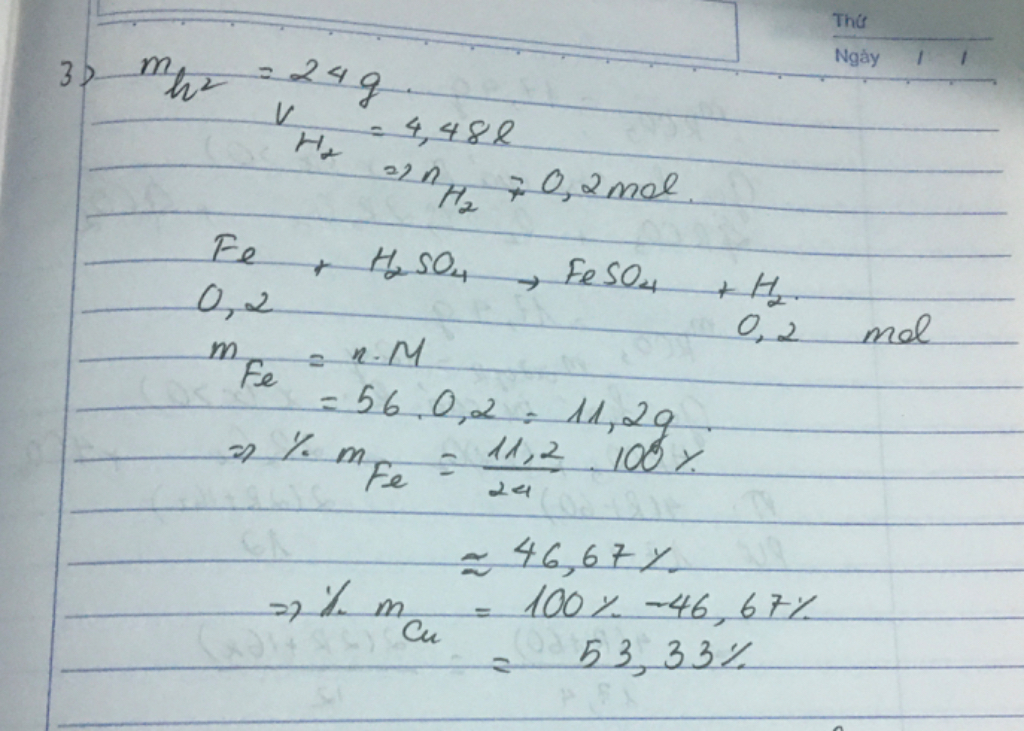 Thứ
Ngày / /
3) m_h² = 24g.
V_H₂ = 4,48l
=> n_H₂ = 0,2 mol.
Fe + H₂SO₄ → FeSO₄ + H₂.
0,2 0,2 mol
m_Fe = n.M
= 56.0,2 = 11,2g.
=> % m_Fe = 11,2/24 . 100%
≈ 46,67%
=> % m_Cu = 100% - 46,67%
= 53,33%